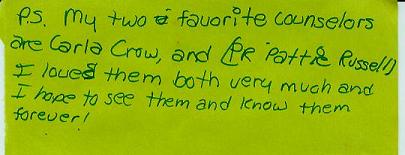 P.S. My two favorite counselors
are Carla Crow, and (PR Pattie Russell)
I loved them both very much and
I hope to see them and know them
forever!